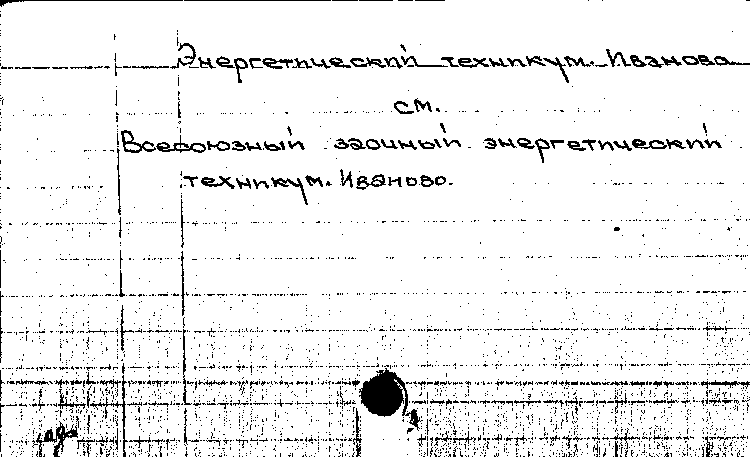 Энергетический техникум. Иваново
см.
Всесоюзный заочный энергетический
техникум. Иваново.